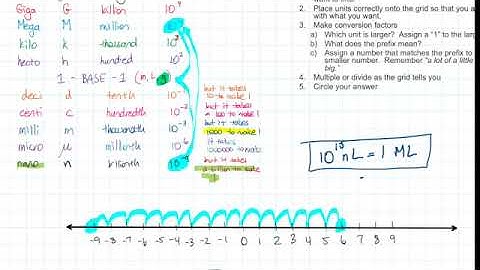 Giga G billion 10⁹
Mega M million
kilo k thousand 10³
hecto h hundred 10²
1 - BASE - 1 (m, L, g)
deci d tenth 10⁻¹
but it takes
10 to make 1
centi c hundredth 10⁻²
but it takes
a 100 to make 1
milli m thousandth 10⁻³
but it takes
1000 to make 1
micro μ millionth 10⁻⁶
it takes
1000000 to make
nano n billionth 10⁻⁹
but it takes
a billion to make
1
2. Place units correctly onto the grid so that you a
with what you want.
3. Make conversion factors
a) Which unit is larger? Assign a "1" to the larg
b) What does the prefix mean?
c) Assign a number that matches the prefix to
smaller number. Remember "a lot of a little
big."
4. Multiple or divide as the grid tells you
5. Circle your answer
10¹⁵ nL = 1 ML
-9 -8 -7 -6 -5 -4 -3 -2 -1 0 1 2 3 4 5 6 7 8 9